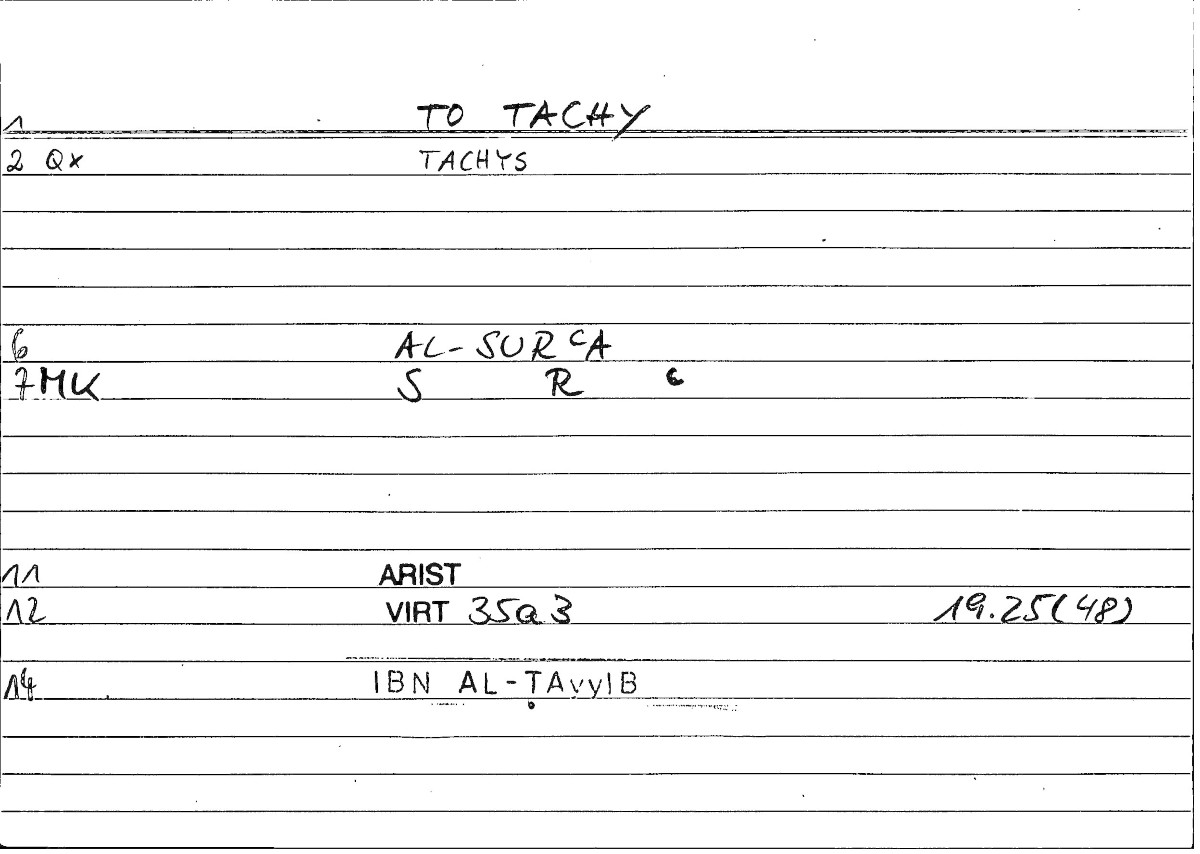 1 TO TACHY
2 QX TACHYS
6 AL-SURʿA
7 MK S R ʿ
11 ARIST
12 VIRT 35a3 19.25(48)
14 IBN AL-ṬAyyIB